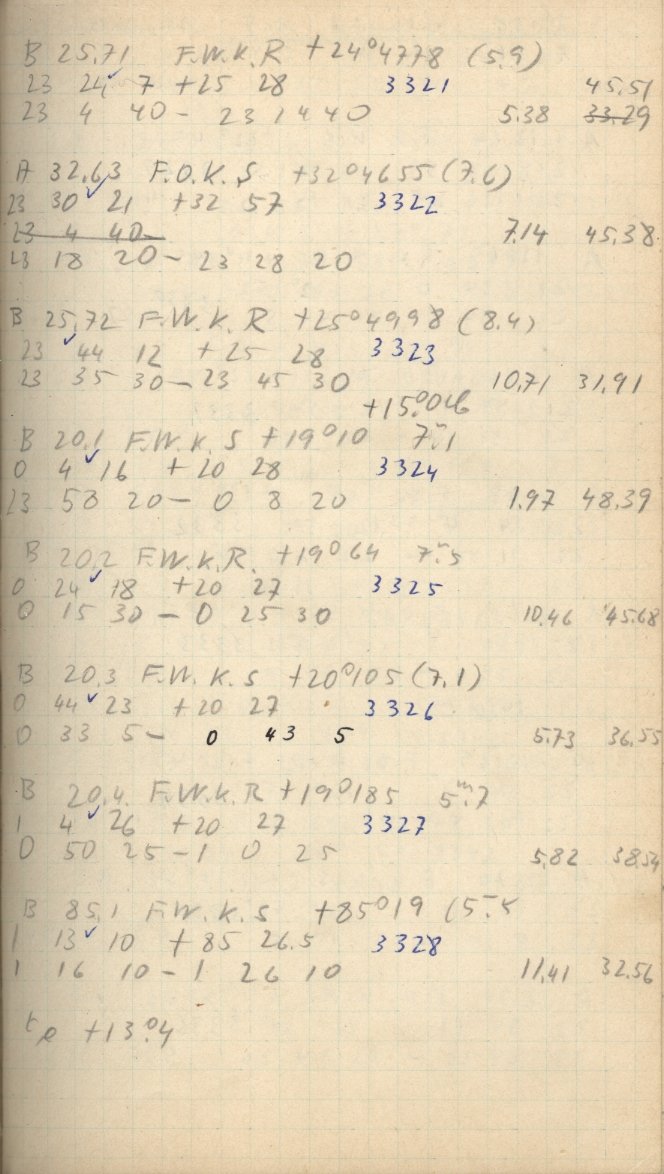 B 25,71 F.W.K.R +24°4778 (5.9)
23 24 7 +25 28 3321 45.51
23 4 40 - 23 14 40 5.38 33.29
A 32,63 F.O.K.S +32°4655 (7.6)
23 30 21 +32 57 3322
23 4 40 7.14 45.38
23 18 20 - 23 28 20
B 25,72 F.W.K.R +25°4998 (8.4)
23 44 12 +25 28 3323
23 35 30 - 23 45 30 10,71 31,91
+15.°0
B 20,1 F.W.K.S +19°10 7.ᵐ1
0 4 16 +20 28 3324
23 58 20 - 0 8 20 1.97 48.39
B 20,2 F.W.K.R. +19°64 7.ᵐ5
0 24 18 +20 27 3325
0 15 30 - 0 25 30 10,46 45.68
B 20,3 F.W.K.S +20°105 (7,1)
0 44 23 +20 27 3326
0 33 5 - 0 43 5 5.73 36,55
B 20,4 F.W.K.R +19°185 5.ᵐ7
1 4 26 +20 27 3327
0 50 25 - 1 0 25 5,82 38.54
B 85,1 F.W.K.S +85°19
1 13 10 +85 26.5 3328
1 16 10 - 1 26 10 11,41 32.56
+13.°4